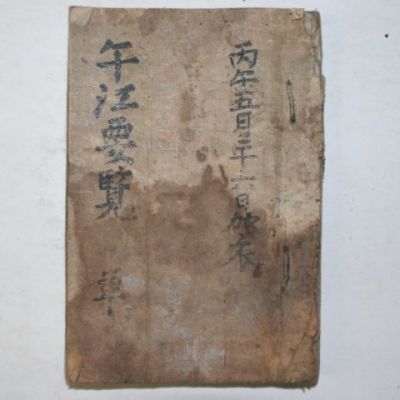 丙午五月二十六日始衣
午江要覽
單